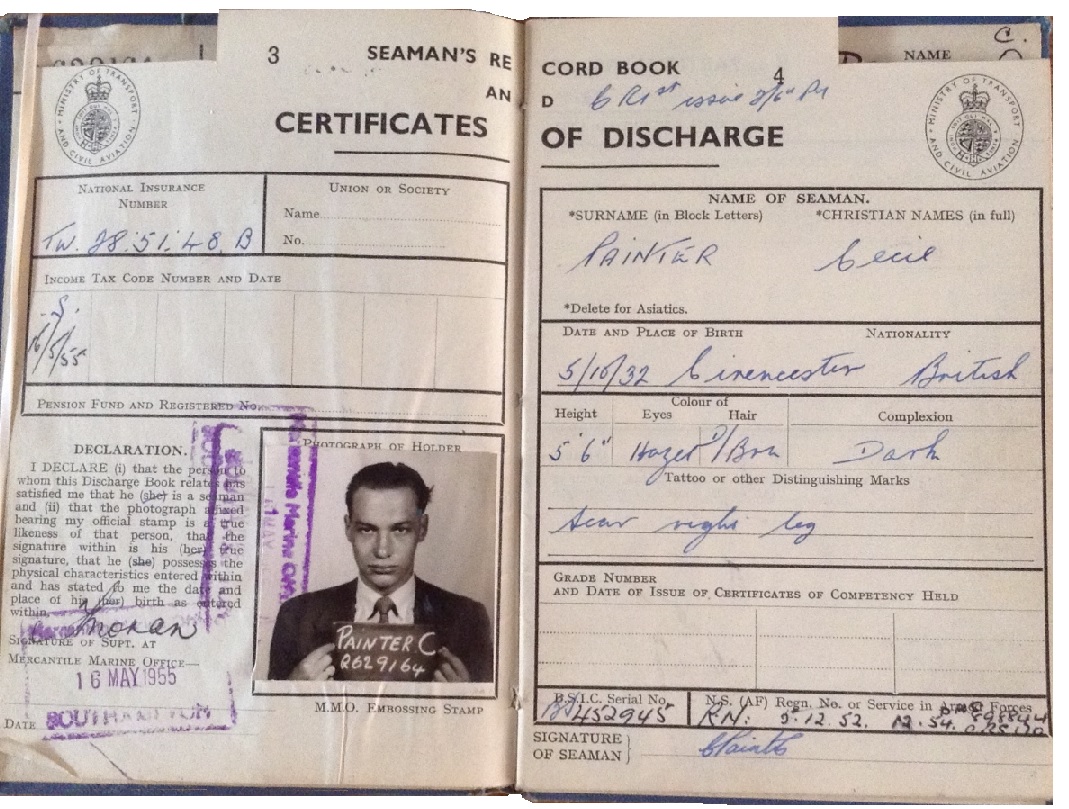 3
SEAMAN'S RE
AN
CERTIFICATES
MINISTRY OF TRANSPORT AND CIVIL AVIATION
NATIONAL INSURANCE
NUMBER
TW. 28.51.48.B
UNION OR SOCIETY
Name
No.
INCOME TAX CODE NUMBER AND DATE
S.
16/5/55
PENSION FUND AND REGISTERED No.
DECLARATION.
I DECLARE (i) that the person to
whom this Discharge Book relates has
satisfied me that he (she) is a seaman
and (ii) that the photograph affixed
bearing my official stamp is a true
likeness of that person, that the
signature within is his (her) true
signature, that he (she) possesses the
physical characteristics entered within
and has stated to me the date and
place of his (her) birth as entered
within.
SIGNATURE OF SUPT. AT
MERCANTILE MARINE OFFICE—
16 MAY 1955
SOUTHAMPTON
DATE
PHOTOGRAPH OF HOLDER
Mercantile Marine
MAY
PAINTER C
R629164
M.M.O. EMBOSSING STAMP
C.
NAME
CORD BOOK
4
D
issue
OF DISCHARGE
MINISTRY OF TRANSPORT AND CIVIL AVIATION
NAME OF SEAMAN.
*SURNAME (in Block Letters) *CHRISTIAN NAMES (in full)
PAINTER Cecil
*Delete for Asiatics.
DATE AND PLACE OF BIRTH NATIONALITY
5/10/32 Cirencester British
Height
Colour of
Eyes Hair
Complexion
5'6" Hazel D/Brn Dark
Tattoo or other Distinguishing Marks
Scar right leg
GRADE NUMBER
AND DATE OF ISSUE OF CERTIFICATES OF COMPETENCY HELD
B.S.I.C. Serial No.
BS452945
N.S. (AF) Regn. No. or Service in Armed Forces
R.N: 5.12.52. 12.54.
SIGNATURE
OF SEAMAN
CPainter